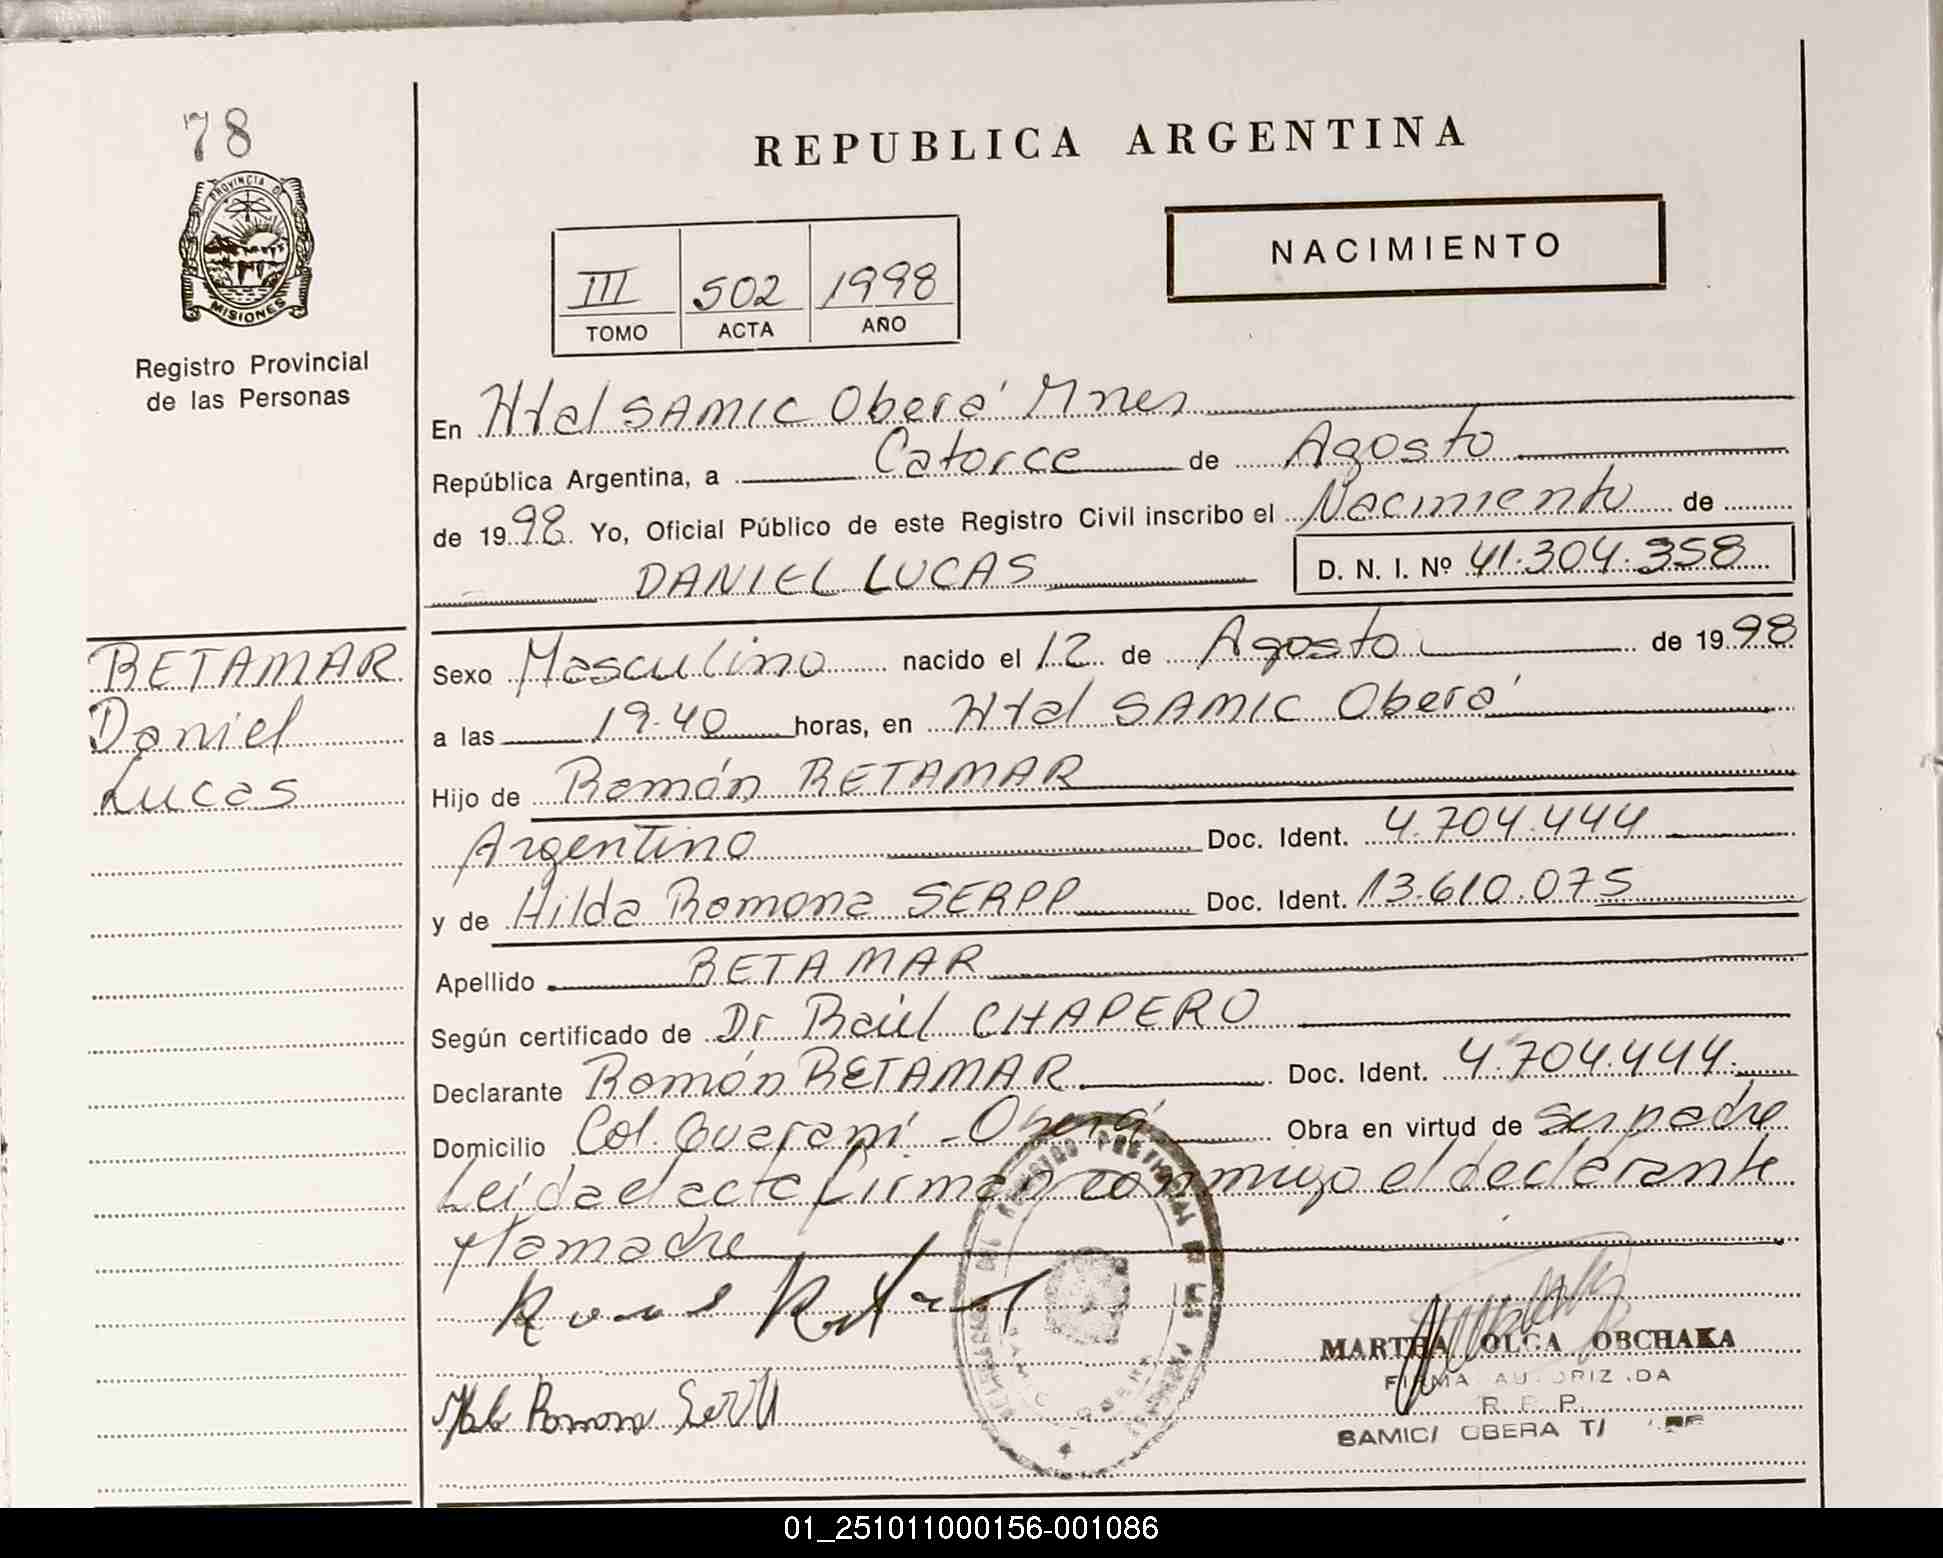 78
PROVINCIA DE
MISIONES
Registro Provincial
de las Personas
REPUBLICA ARGENTINA
NACIMIENTO
III 502 1998
TOMO ACTA AÑO
En Htal SAMIC Oberá Mnes
República Argentina, a Catorce de Agosto
de 1998 Yo, Oficial Público de este Registro Civil inscribo el Nacimiento de
DANIEL LUCAS D. N. I. Nº 41.304.358
RETAMAR
Daniel
Lucas
Sexo Masculino nacido el 12 de Agosto de 1998
a las 19.40 horas, en Htal SAMIC Oberá
Hijo de Ramón RETAMAR
Argentino Doc. Ident. 4.704.444
y de Hilda Ramona SERPP Doc. Ident. 13.610.075
Apellido RETAMAR
Según certificado de Dr Raúl CHAPERO
Declarante Ramón RETAMAR Doc. Ident. 4.704.444
Domicilio Col. Guaraní - Oberá Obra en virtud de ser padre
Leída el acta firman conmigo el declarante
y la madre
MARTHA OLGA OBCHAKA
FIRMA AUTORIZ.DA
R. P. P.
SAMIC/ OBERA T/
Ramona
01_251011000156-001086